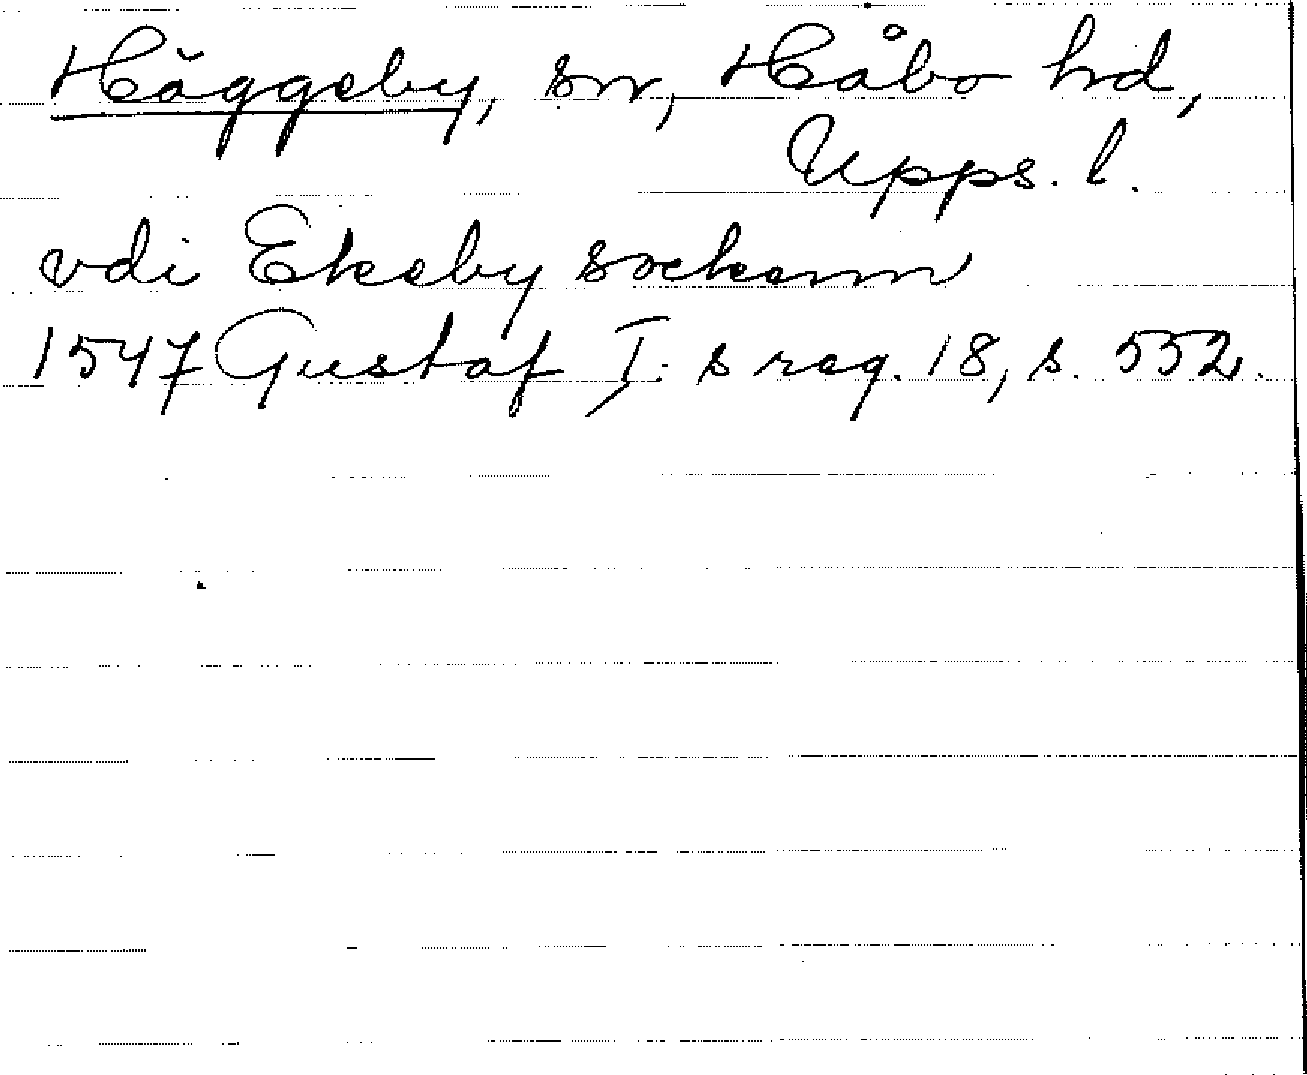 Häggeby, sn, Håbo hd,
Upps. l.
vdi Ekeby sockenn
1547 Gustaf I:s reg. 18, s. 552.